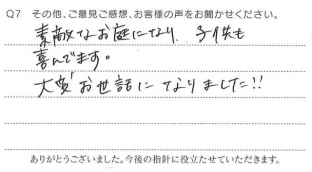 Q7 その他、ご意見ご感想、お客様の声をお聞かせください。
素敵なお庭になり、子供も
喜んでます。
大変お世話になりました!!
ありがとうございました。今後の指針に役立たせていただきます。